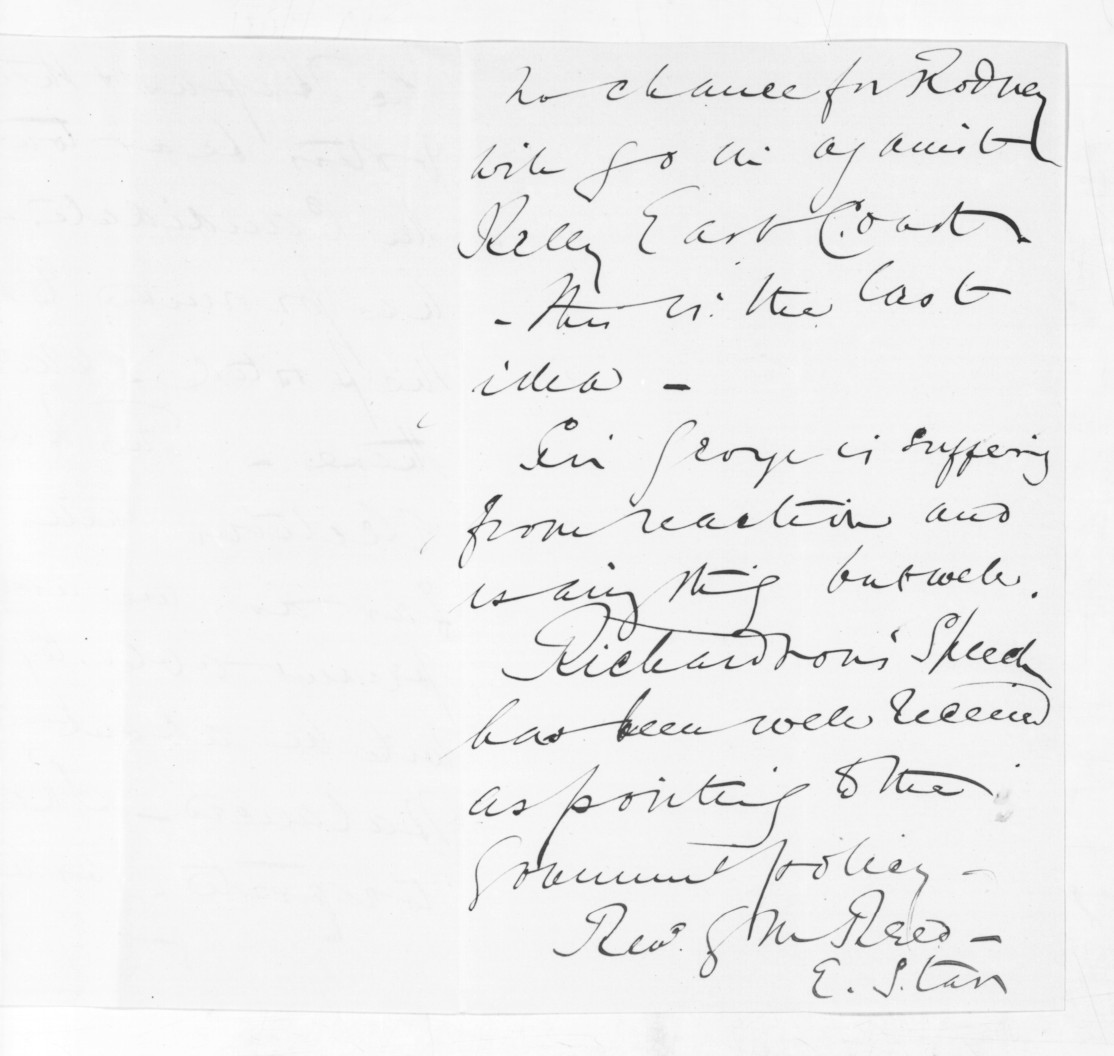 no chance for Rodney
will go in against
Kelly East Coast.
- this is the last
idea -
Sir George is suffering
from reaction and
is anything but well.
Richardson's Speech
has been well received
as pointing to the
Government policy -
Revd. G M Reed -
E. Star